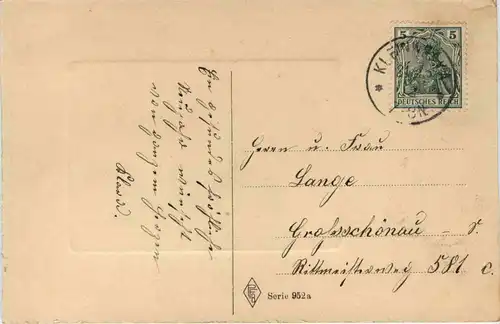 Ein gesundes fröhliches
Neujahr wünscht
von ganzem Herzen
5 5
DEUTSCHES REICH
Herrn u. Frau
Lange
Grossschönau i. S.
Rittmeisterweg 581 c
Serie 952a